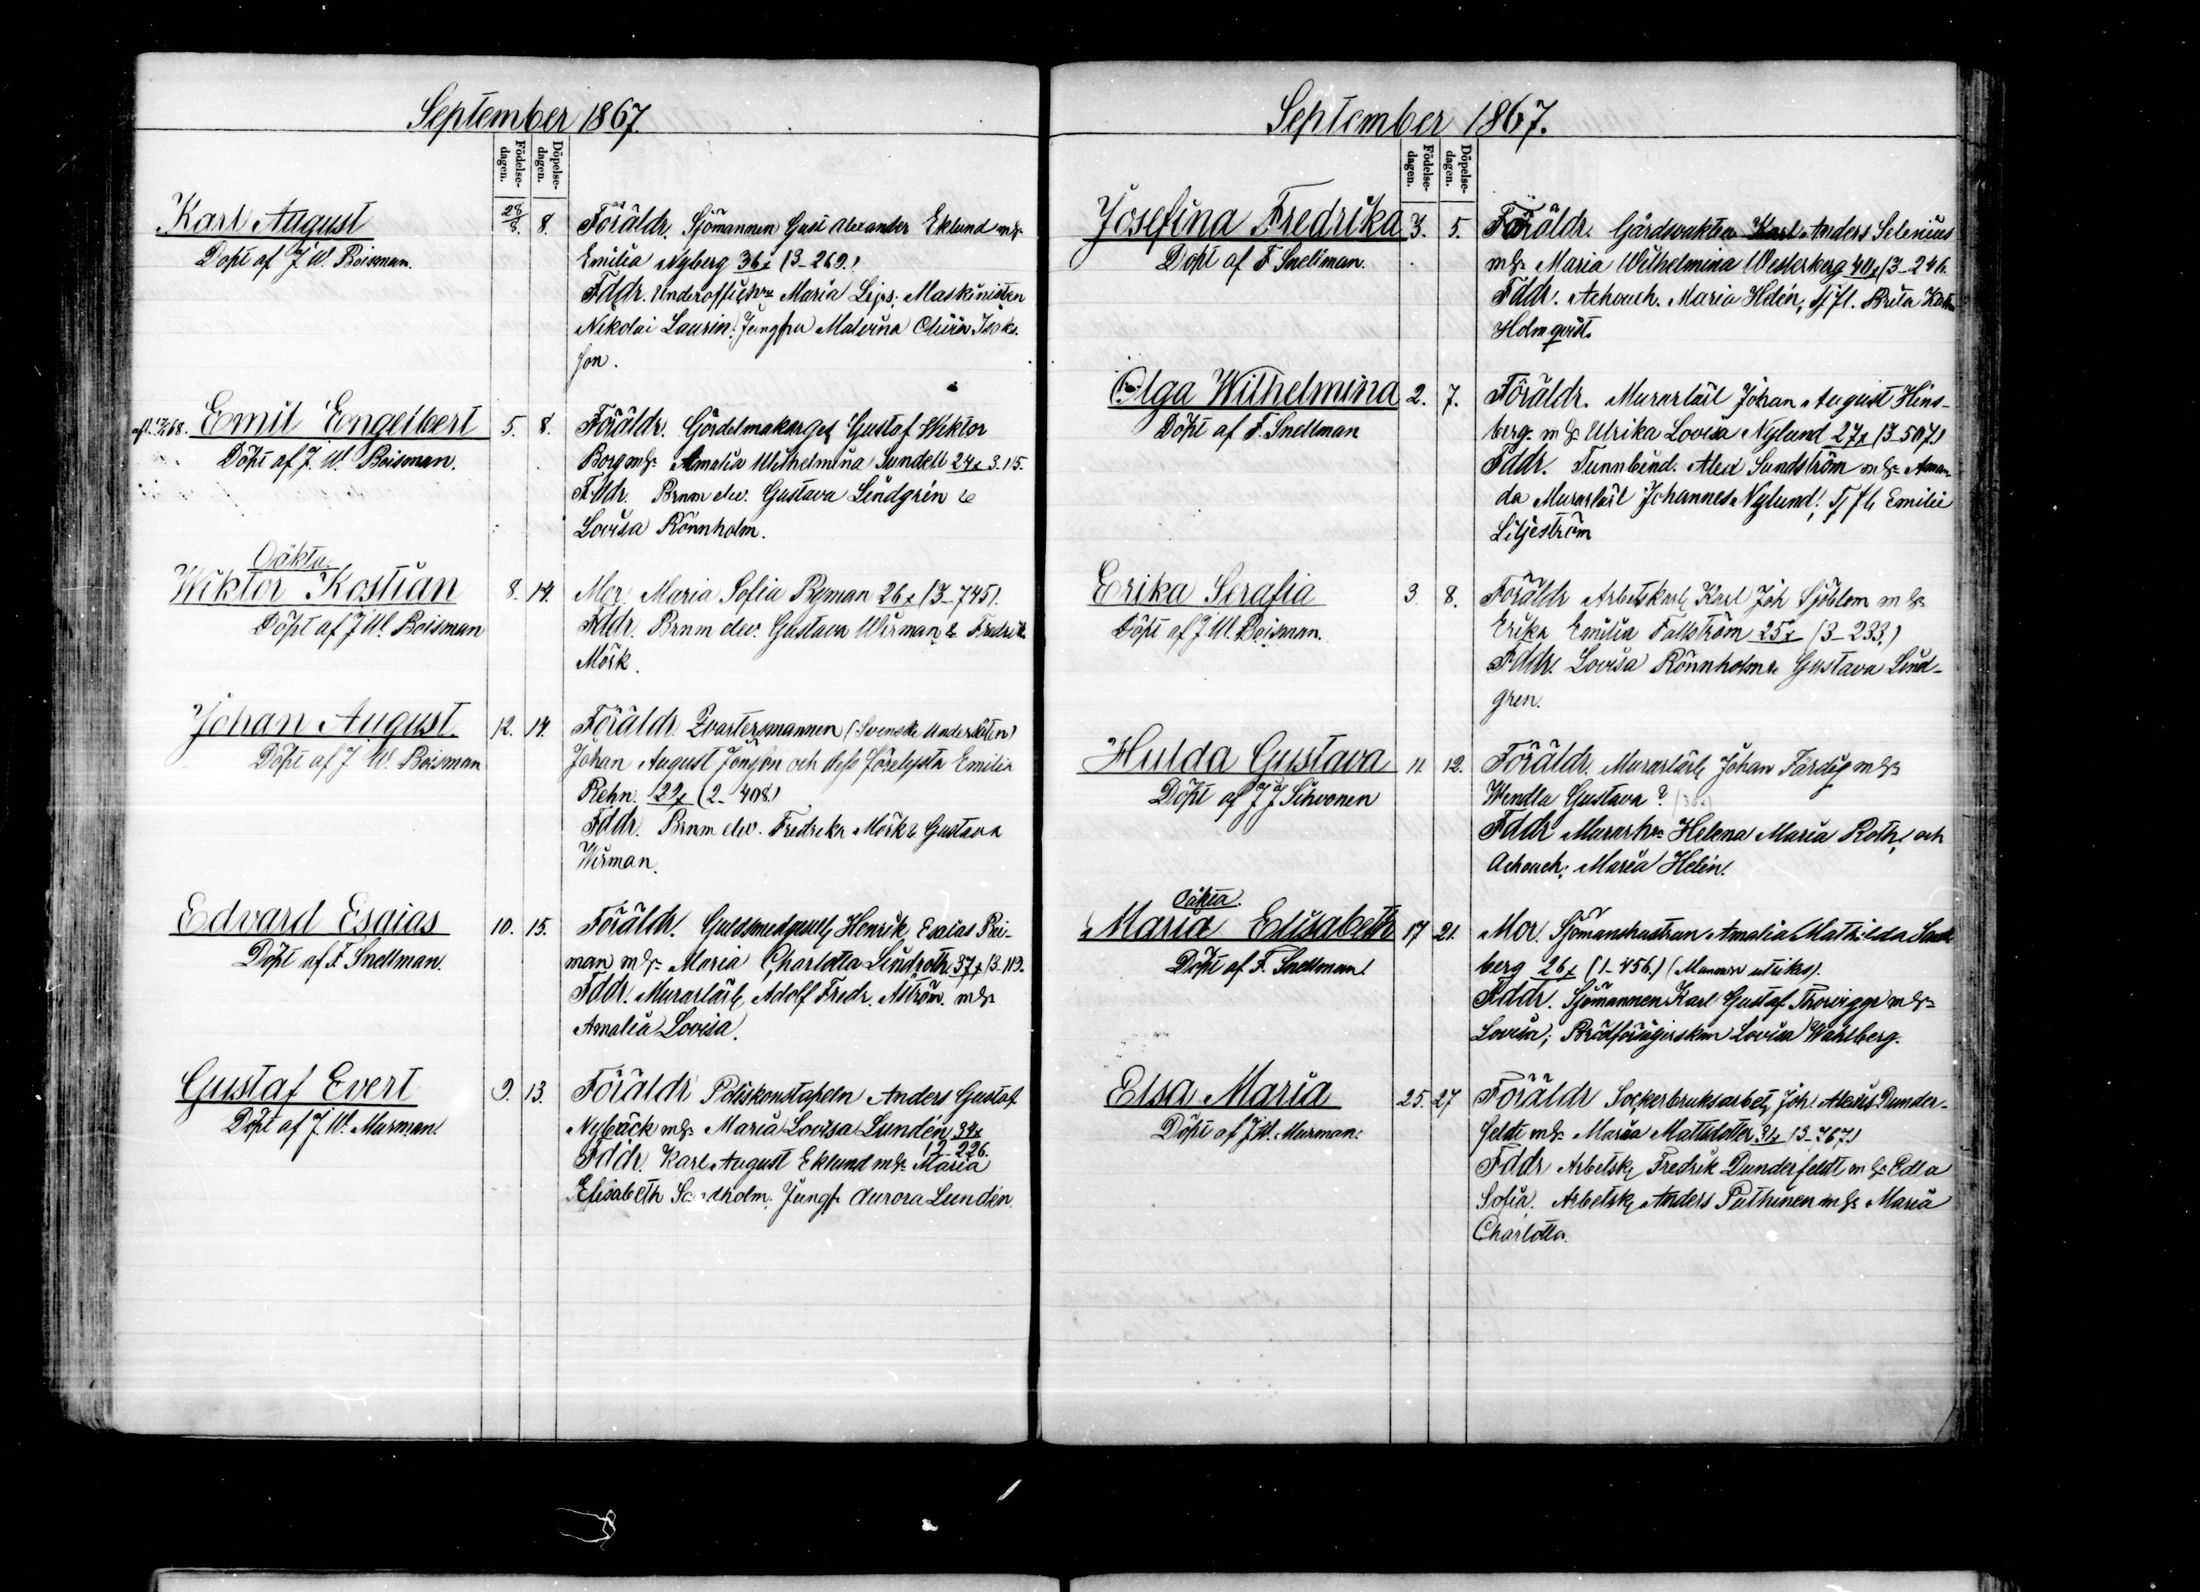 September 1867.
Födelse-
dagen.
Döpelse-
dagen.
Karl August
28/8. 8.
Döpt af J W. Boisman.
Föräldr. Sjömannen Gust Alexander Eklund m h:
Emilia Nyberg 36 (3-269.)
Fddr. Maria Maskinisten
Nikolai Laurin. Jungfru
son.
aft. 68. Emil Engelbert
5. 8.
Döpt af J. W. Boisman.
Föräldr. Gördelmakareges. Gustaf Wiktor
Borg m h: Amalia Wilhelmina Sundell 24 3.115.
Fddr. Brnm elev. Gustava Lindgrén &
Lovisa Rönnholm.
Oäkta.
Wiktor Kostian
8. 14.
Döpt af J W. Boisman
Mor. Maria Sofia Ryman 26 (3-745).
Fddr. Brnm elev. Gustava Wirman & Fredrik.
Mörk.
Johan August.
12. 14.
Döpt af J W. Boisman
Föräldr. Qvartersmannen (Svenske undersåten)
Johan August Jonsson och dess Emilia
Rehn. 29 (2-408)
Fddr. Brnm elev. Fredrika Mörk & Gustava
Wirman.
Edvard Esaias
10. 15.
Döpt af F. Snellman.
Föräldr. Guldsmedgesell, Henrik Esaias Rei-
man m h: Maria Charlotta Lindroth 37 (3.119.
Fddr. Murarlärl, Adolf Fredr. Åström m h:
Amalia Lovisa.
Gustaf Evert
9. 13.
Döpt af J. W. Murman.
Föräldr Poliskonstapeln Anders Gustaf
Nybäck m h: Maria Lovisa Lundén 34
(2-226.
Fddr. Karl August Eklund m h: Maria
Elisabeth Sandholm. Jungf. Aurora Lundén.
September 1867.
Födelse-
dagen.
Döpelse-
dagen.
Josefina Fredrika
3. 5.
Döpt af F. Snellman.
Föräldr. Gårdvakten Karl Anders Selenius
m h: Maria Wilhelmina Westerberg 40 (3-246.
Fddr. Achouch. Maria Helén, Tj fl. Brita
Holmqvist.
Olga Wilhelmina
2. 7.
Döpt af F. Snellman
Föräldr. Murarlärl Johan August Hins-
berg m h: Ulrika Lovisa Nylund 27 (3-507)
Fddr. Tunnbind. Alex Sundström m h: Aman-
da Murarlärl Johannes Nylund, Tj fl Emilie
Liljeström
Erika Serafia
3. 8.
Döpt af J W. Boisman.
Föräldr Arbetskarl, Karl Joh Sjöblom m h:
Erika Emilia Fallström 25 (3-233.)
Fddr. Lovisa Rönnholm & Gustava Lind-
gren.
Hulda Gustava
11. 12.
Döpt af J J. Sihvonen
Föräldr. Murarlärl, Johan Färdig m h:
Wendla Gustava ?
Fddr Murarhu: Helena Maria Roth, och
Achouch. Maria Helén.
Oäkta.
Maria Elisabeth
17 21.
Döpt af F. Snellman
Mor. Sjömanshustrun Amalia Mathilda
berg 26 (1-456.) (Mannen utrikes).
Fddr. Sjömannen Karl Gustaf m h:
Lovisa; Brödförsäljerskan Lovisa Wahlberg.
Elsa Maria
25. 27
Döpt af J W. Murman.
Föräldr Sockerbruksarbet, Joh. Alexis Dunder-
feldt m h: Maria Mattsdotter 31 (3-767)
Fddr Arbetsk, Fredrik Dunderfeldt m h: Edla
Sofia. Arbetsk, Anders Puthinen m h: Maria
Charlotta.